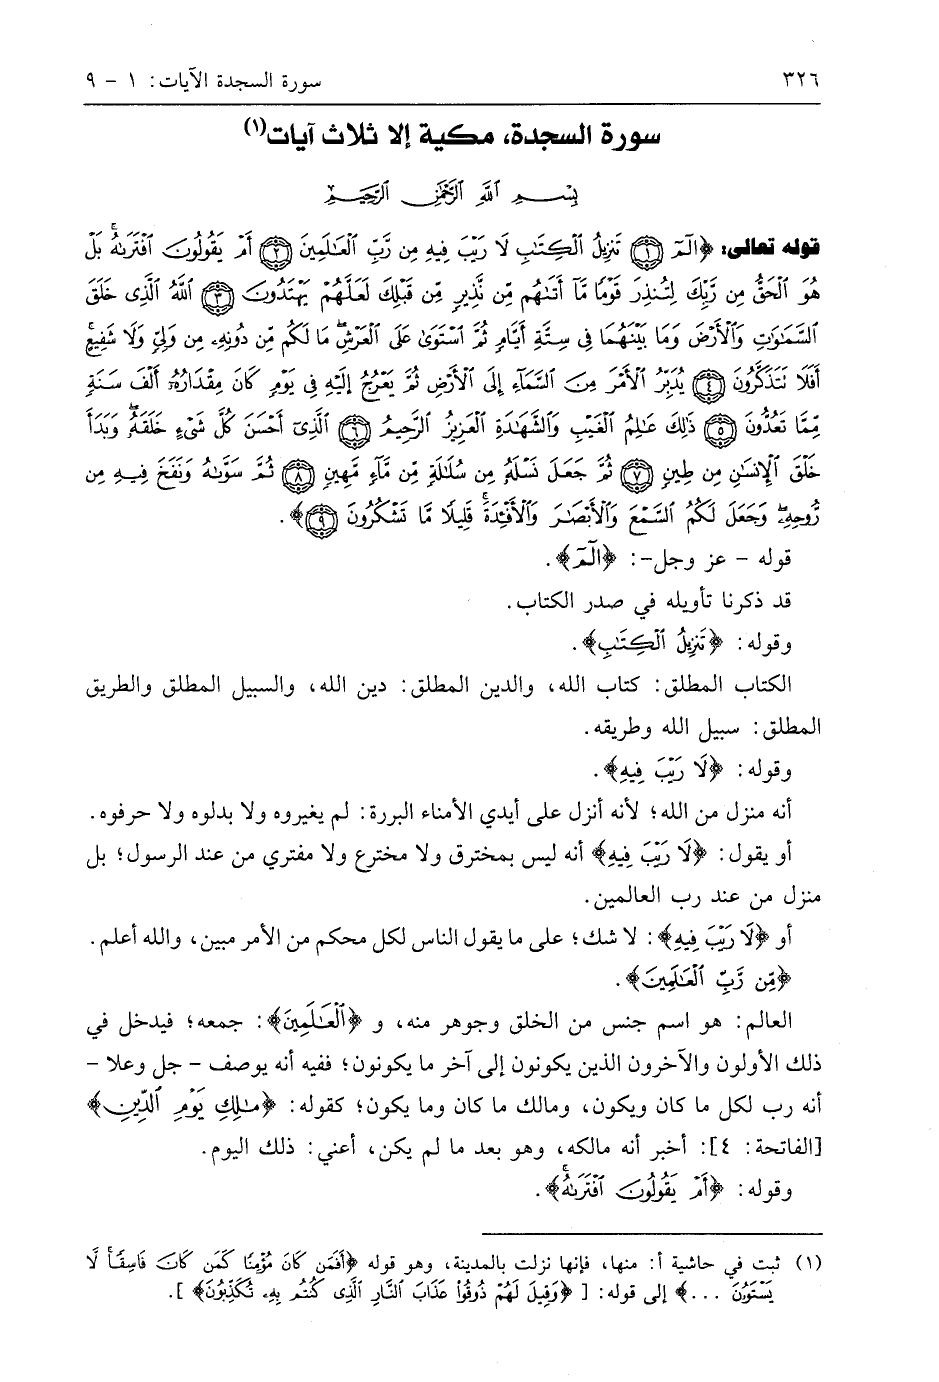 ٣٢٦
سورة السجدة الآيات: ١ - ٩
سورة السجدة، مكية إلا ثلاث آيات(١)
بِسْمِ ٱللَّهِ ٱلرَّحْمَٰنِ ٱلرَّحِيمِ
قوله تعالى: ﴿الٓمٓ ۝١ تَنزِيلُ ٱلْكِتَٰبِ لَا رَيْبَ فِيهِ مِن رَّبِّ ٱلْعَٰلَمِينَ ۝٢ أَمْ يَقُولُونَ ٱفْتَرَىٰهُۚ بَلْ
هُوَ ٱلْحَقُّ مِن رَّبِّكَ لِتُنذِرَ قَوْمًا مَّآ أَتَىٰهُم مِّن نَّذِيرٍ مِّن قَبْلِكَ لَعَلَّهُمْ يَهْتَدُونَ ۝٣ ٱللَّهُ ٱلَّذِى خَلَقَ
ٱلسَّمَٰوَٰتِ وَٱلْأَرْضَ وَمَا بَيْنَهُمَا فِى سِتَّةِ أَيَّامٍ ثُمَّ ٱسْتَوَىٰ عَلَى ٱلْعَرْشِۖ مَا لَكُم مِّن دُونِهِۦ مِن وَلِىٍّ وَلَا شَفِيعٍۚ
أَفَلَا تَتَذَكَّرُونَ ۝٤ يُدَبِّرُ ٱلْأَمْرَ مِنَ ٱلسَّمَآءِ إِلَى ٱلْأَرْضِ ثُمَّ يَعْرُجُ إِلَيْهِ فِى يَوْمٍ كَانَ مِقْدَارُهُۥٓ أَلْفَ سَنَةٍ
مِّمَّا تَعُدُّونَ ۝٥ ذَٰلِكَ عَٰلِمُ ٱلْغَيْبِ وَٱلشَّهَٰدَةِ ٱلْعَزِيزُ ٱلرَّحِيمُ ۝٦ ٱلَّذِىٓ أَحْسَنَ كُلَّ شَىْءٍ خَلَقَهُۥۖ وَبَدَأَ
خَلْقَ ٱلْإِنسَٰنِ مِن طِينٍ ۝٧ ثُمَّ جَعَلَ نَسْلَهُۥ مِن سُلَٰلَةٍ مِّن مَّآءٍ مَّهِينٍ ۝٨ ثُمَّ سَوَّىٰهُ وَنَفَخَ فِيهِ مِن
رُّوحِهِۦۖ وَجَعَلَ لَكُمُ ٱلسَّمْعَ وَٱلْأَبْصَٰرَ وَٱلْأَفْـِٔدَةَۚ قَلِيلًا مَّا تَشْكُرُونَ ۝٩﴾.
قوله - عز وجل-: ﴿الٓمٓ﴾.
قد ذكرنا تأويله في صدر الكتاب.
وقوله: ﴿تَنزِيلُ ٱلْكِتَٰبِ﴾.
الكتاب المطلق: كتاب الله، والدين المطلق: دين الله، والسبيل المطلق والطريق
المطلق: سبيل الله وطريقه.
وقوله: ﴿لَا رَيْبَ فِيهِ﴾.
أنه منزل من الله؛ لأنه أنزل على أيدي الأمناء البررة: لم يغيروه ولا بدلوه ولا حرفوه.
أو يقول: ﴿لَا رَيْبَ فِيهِ﴾ أنه ليس بمخترق ولا مخترع ولا مفتري من عند الرسول؛ بل
منزل من عند رب العالمين.
أو ﴿لَا رَيْبَ فِيهِ﴾: لا شك؛ على ما يقول الناس لكل محكم من الأمر مبين، والله أعلم.
﴿مِن رَّبِّ ٱلْعَٰلَمِينَ﴾.
العالم: هو اسم جنس من الخلق وجوهر منه، و ﴿ٱلْعَٰلَمِينَ﴾: جمعه؛ فيدخل في
ذلك الأولون والآخرون الذين يكونون إلى آخر ما يكونون؛ ففيه أنه يوصف - جل وعلا -
أنه رب لكل ما كان ويكون، ومالك ما كان وما يكون؛ كقوله: ﴿مَٰلِكِ يَوْمِ ٱلدِّينِ﴾
[الفاتحة: ٤]: أخبر أنه مالكه، وهو بعد ما لم يكن، أعني: ذلك اليوم.
وقوله: ﴿أَمْ يَقُولُونَ ٱفْتَرَىٰهُۚ﴾.
(١) ثبت في حاشية أ: منها، فإنها نزلت بالمدينة، وهو قوله ﴿أَفَمَن كَانَ مُؤْمِنًا كَمَن كَانَ فَاسِقًاۚ لَّا
يَسْتَوُۥنَ ...﴾ إلى قوله: [ ﴿وَقِيلَ لَهُمْ ذُوقُوا۟ عَذَابَ ٱلنَّارِ ٱلَّذِى كُنتُم بِهِۦ تُكَذِّبُونَ﴾ ].